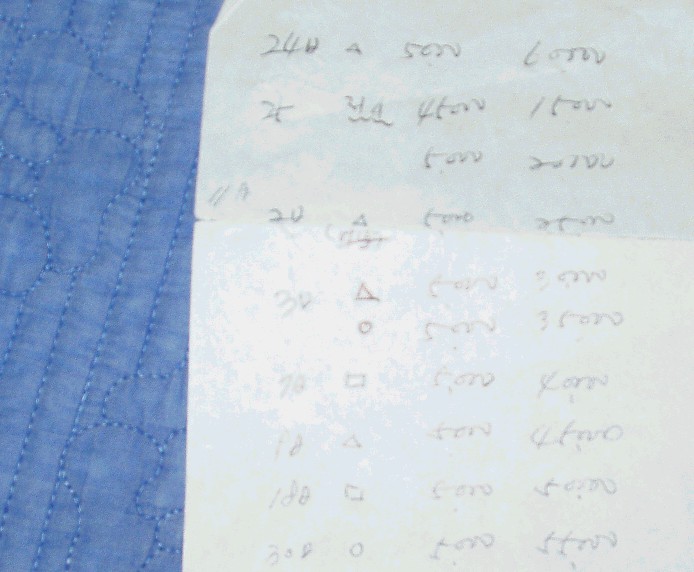 24日 △ 5000 60000
25 45000 15000
5000 20000
11月
2日 △ 5000 25000
3日 △ 5000 30000
○ 5000 35000
7日 □ 5000 40000
9日 △ 5000 45000
18日 □ 5000 50000
30日 ○ 5000 55000